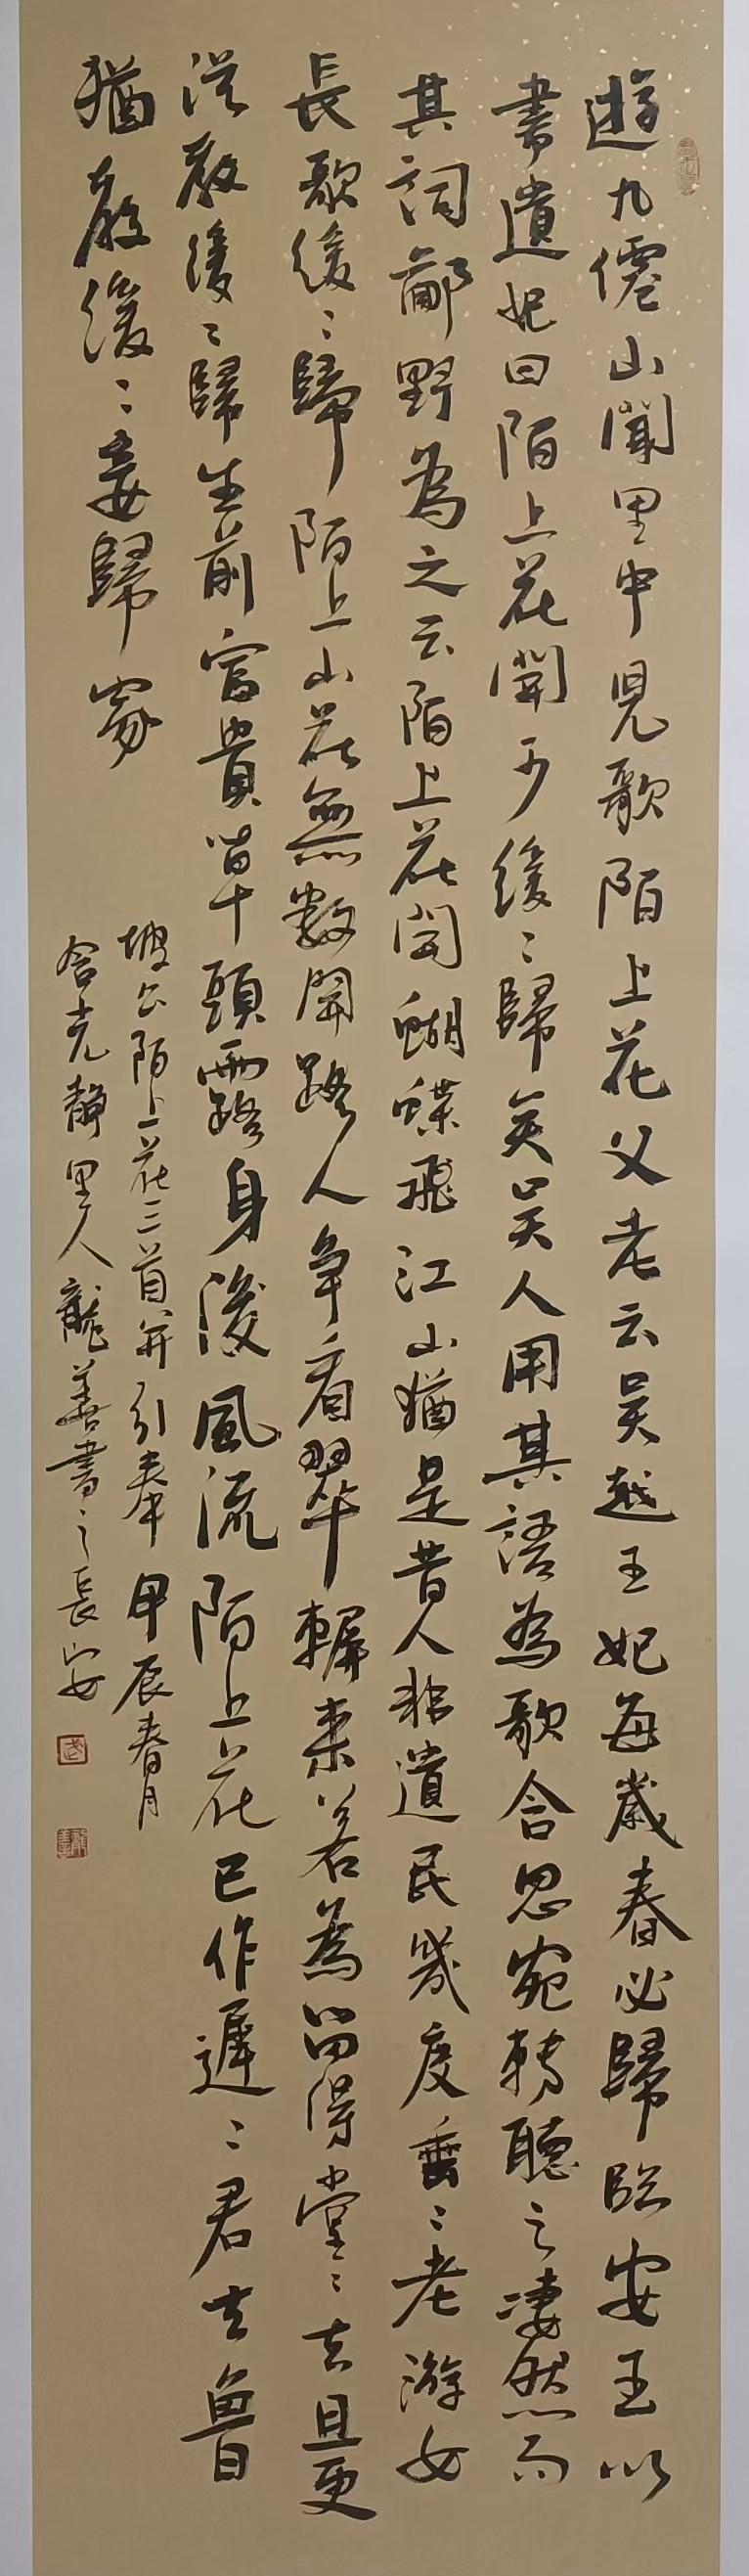 遊九僊山聞里中児歌陌上花父老云吴越王妃每歲春必歸臨安王以
書遺妃曰陌上花開可緩〻歸矣吴人用其語為歌含思宛轉聽之凄然而
其詞鄙野為之云陌上花開蝴蝶飛江山猶是昔人非遺民幾度垂〻老游女
長歌緩〻歸陌上山花無數開路人争看翠軿来若為留得堂〻去且更
從教緩〻歸生前富貴草頭露身後風流陌上花已作遲〻君去魯
猶教緩〻妾歸家
坡公陌上花三首并引奉甲辰春月
含光静里人龍善書之長安